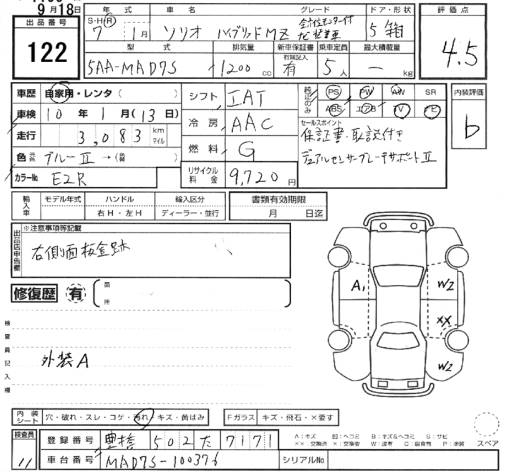 9月18日
出品番号 122
年式 車名 グレード ドア・形状 評価点
S・H・R 7年 1月 ソリオ ハイブリッドMZ 全方位モニター付 5 箱 4.5
型式 排気量 新車保証書 乗車定員 最大積載量
5AA-MAD7S 1200cc 有 5人 - kg
車歴 自家用・レンタ( )
車検 10年 1月(13日)
走行 3,083 km マイル
色 ブルーⅡ→( )
カラーNo. E2R
シフト IAT
冷房 AAC
燃料 G
リサイクル料金 9,720円
純正のみ PS PW AW SR
ABS エアB TV ナビ
セールスポイント
保証書・取説付き
デュアルセンサーブレーキサポートⅡ
内装評価 b
輸入車 モデル年式 ハンドル 輸入区分 書類有効期限
年 右H・左H ディーラー・並行 月 日迄
出品店申告欄 ※注意事項等記載
右側面板金跡
修復歴 有 箇所
検査員記入欄
外装A
A1 W2
XX
W2
内装シート 穴・破れ・スレ・コゲ・汚れ・キズ・黄ばみ Fガラス キズ・飛石・X要す
検査員 11
登録番号 豊橋 502 た 7171
車台番号 MAD7S-100376 シリアルNo.
スペア